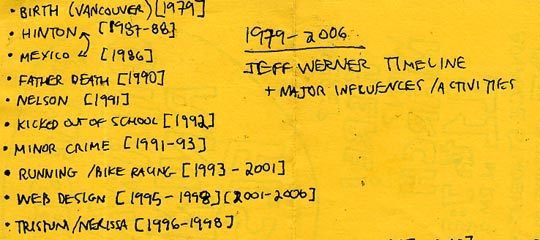 • BIRTH (VANCOUVER) [1979]
• HINTON [1987-88]
• MEXICO [1986]
• FATHER DEATH [1990]
• NELSON [1991]
• KICKED OUT OF SCHOOL [1992]
• MINOR CRIME [1991-93]
• RUNNING / BIKE RACING [1993 - 2001]
• WEB DESIGN [1995-1998] [2001-2006]
• TRISTUM/NERISSA [1996-1998]
1979-2006
JEFF WERNER TIMELINE
+ MAJOR INFLUENCES / ACTIVITIES